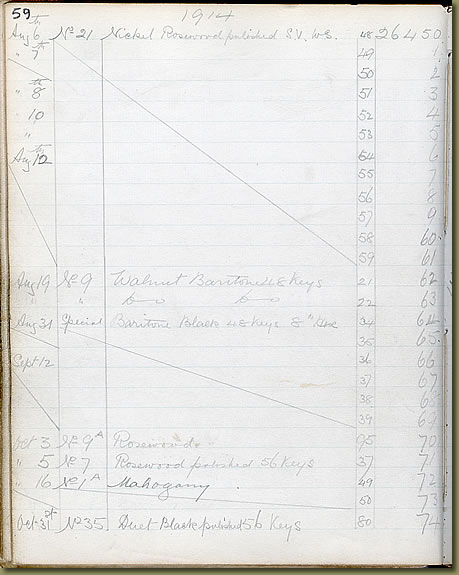 59 1914
Aug 6th No 21 Nickel Rosewood polished S.V. W.S. 48 26450
" 7th 49 1
50 2
" 8th 51 3
" 10 52 4
" 53 5
Aug 12th 54 6
55 7
56 8
57 9
58 60
59 61
Aug 19 No 9 Walnut Baritone 48 Keys 21 62
" " do do 22 63
Aug 31 Special Baritone Black 48 Keys 8" 34 64
35 65
Sept 12 36 66
37 67
38 68
39 69
Oct 3 No 9A Rosewood do " 95 70
" 5 No 7 Rosewood polished 56 Keys 37 71
" 16 No 1A Mahogany 49 72
50 73
Oct 31st No 35 Duet Black polished 56 Keys 80 74